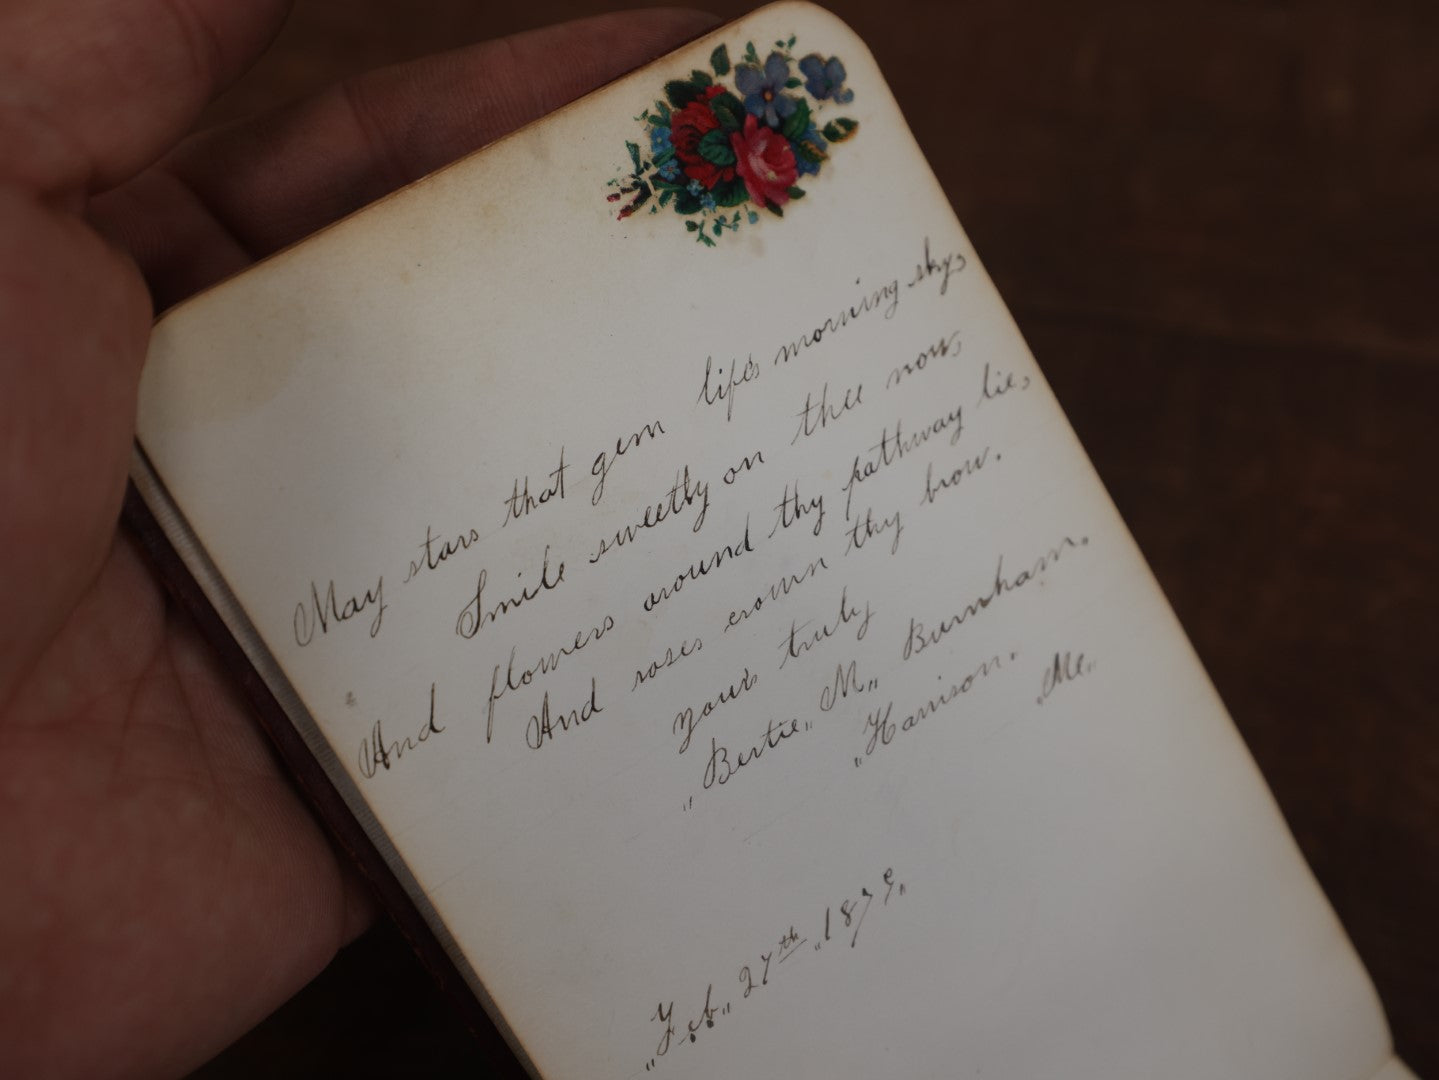 May stars that gem life's morning sky,
Smile sweetly on thee now,
And flowers around thy pathway lie,
And roses crown thy brow.
yours truly
„Bertie„ M„ Burnham.
„Harrison. „Me„
„Feb„ 27th „1879„